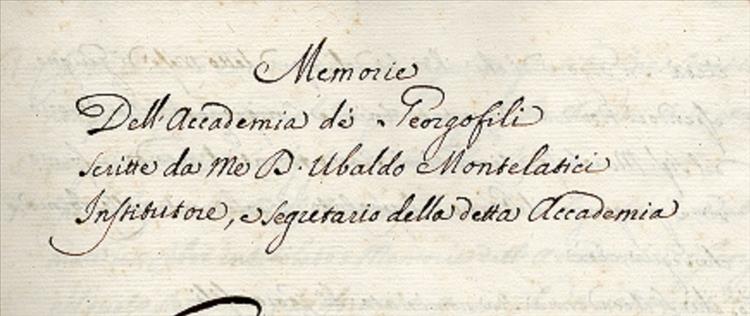 Memorie
Dell'Accademia dè Georgofili
scritte da me D. Ubaldo Montelatici
Institutore, e segretario della detta Accademia